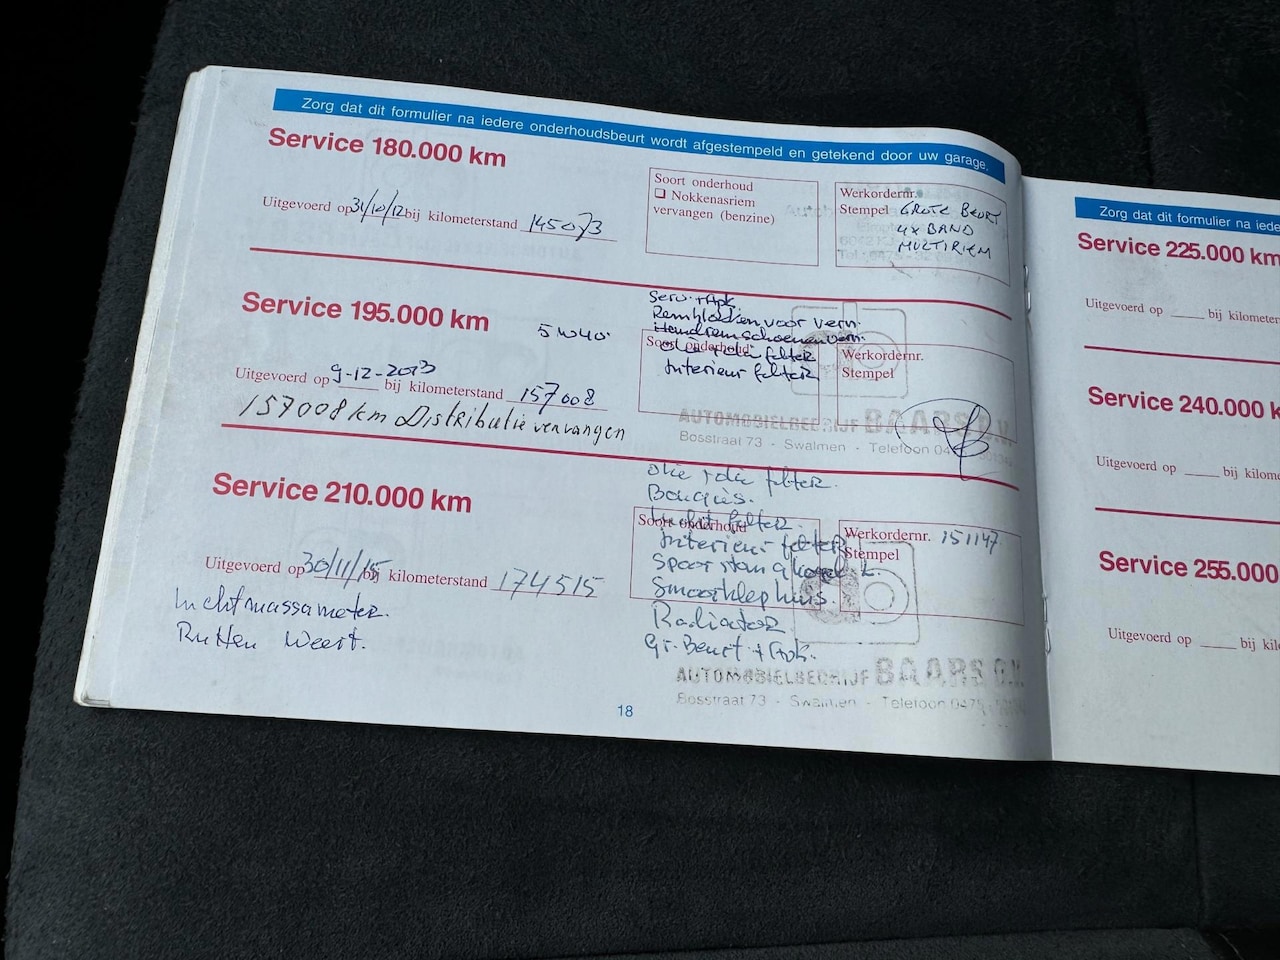 Zorg dat dit formulier na iedere onderhoudsbeurt wordt afgestempeld en getekend door uw garage.
Service 180.000 km
Uitgevoerd op 31/10/12 bij kilometerstand 145073
Soort onderhoud
❑ Nokkenasriem
vervangen (benzine)
Werkordernr.
Stempel GROTE BEURT
4x BAND
MULTIRIEM
Service 195.000 km
5W40.
Uitgevoerd op 9-12-2013 bij kilometerstand 157008
157008 km Distributie vervangen
Serv. + Apk.
Remblokken voor vern.
Handremschoenen vern.
Soort onderhoud
olie + olie filter
Interieur filter
Werkordernr.
Stempel
AUTOMOBIELBEDRIJF BAARS B.V.
Bosstraat 73 - Swalmen - Telefoon 04
Service 210.000 km
Uitgevoerd op 30/11/15 bij kilometerstand 174515
luchtmassameter.
Rutten Weert.
olie + olie filter.
Bougies.
Soort onderhoud
Lucht filter.
Interieur filter
Spoorstangkogel
Smoorklephuis.
Radiator
Gr. Beurt + Apk.
Werkordernr. 151147
Stempel
AUTOMOBIELBEDRIJF BAARS B.V.
Bosstraat 73 - Swalmen - Telefoon 047
18
Zorg dat dit formulier na iede
Service 225.000 km
Uitgevoerd op ____ bij kilometer
Service 240.000 k
Uitgevoerd op ____ bij kilome
Service 255.000
Uitgevoerd op ____ bij kil